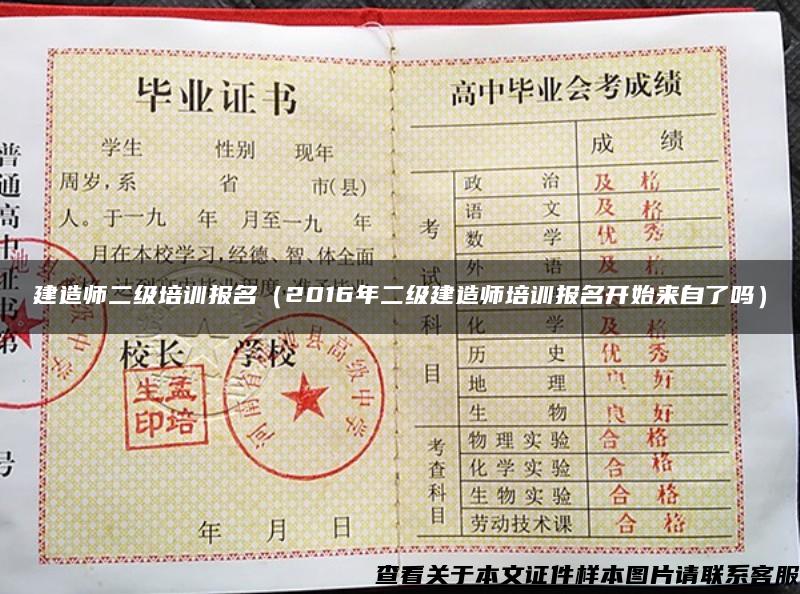 毕业证书
学生 性别 现年
周岁，系 省 市(县)
人。于一九 年 月至一九 年
月在本校学习，经德、智、体全面
建造师二级培训报名（2016年二级建造师培训报名开始来自了吗）
校长 学校
孟培
生印
县高级中学
年 月 日
普通高中
证书第
号
高中毕业会考成绩
成 绩
考试科目
政 治 及格
语 文 及格
数 学 优秀
外 语 及格
化 学 及格
历 史 优秀
地 理 良好
生 物 良好
考查科目
物理实验 合格
化学实验 合格
生物实验 合格
劳动技术课 合格
查看关于本文证件样本图片请联系客服